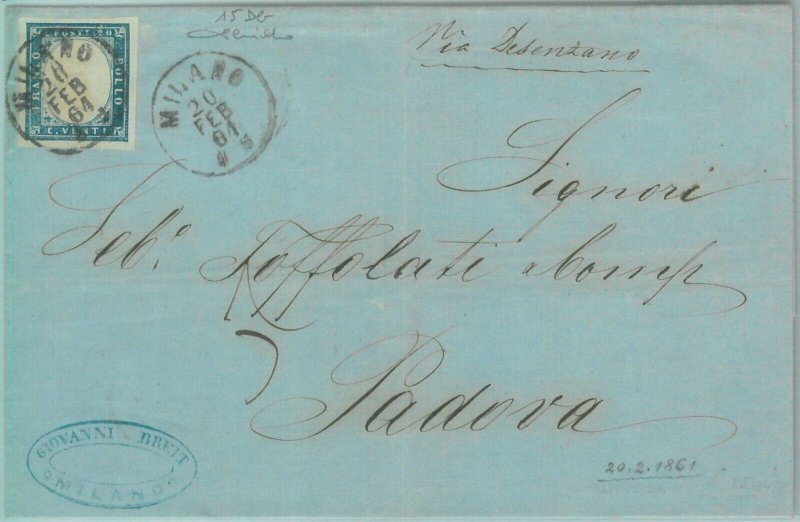 15 Db
Via Desenzano
POSTE 20
FRANCO
BOLLO
C. VENTI
MILANO
20
FEB
61
MILANO
20
FEB
61
Signori
Seb.º Toffolati e Comp
Padova
GIOVANNI BREIT
MILANO
20.2.1861